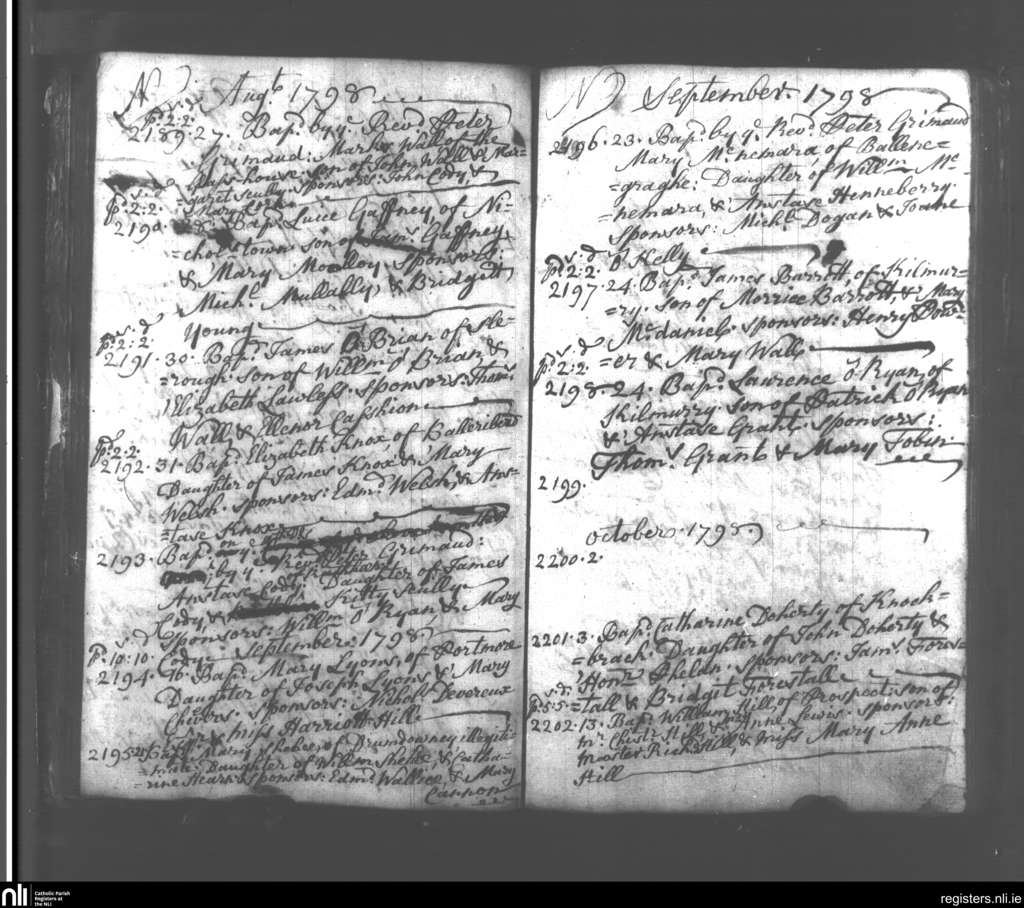 N Augt. 1798
s. d
pd. 2:2.
2189. 27. Bapd. by ye. Revd. Peter
Grimaud: Markes Wall of the
Mass house. son of John Wall & Mar=
garit Scully. sponsors: John Cody &
Mary Corke
s. d
pd. 2:2.
2190. Bapd. Luice Gaffney, of Ni=
=cholstown son of Gaffney
& Mary Molloy sponsors:
Michl. Mullally & Bridgett
Young
s. d
pd. 2:2.
2191. 30. Bapd. James O Brian of Sle=
=rough. son of Willm. O Brian &
Elizabeth Lawless. sponsors: Thoms.
Wall, & Elenor Casshion
pd. 2:2.
2192. 31. Bapd. Elizabeth Knox, of Balleribeed
Daughter of James Knox & Mary
Welsh. sponsors: Edmd. Welsh, & Ans=
=tase Knox
2193. Bapd. on ye.
by ye. Revd. Peter Grimaud:
Anstase Cody, Daughter of James
Cody, & Kitty Scully.
Sponsors: Willm O Ryan & Mary
Cody
s. d September: 1798
pd. 10:10.
2194. 16. Bapd. Mary Lyons, of Portmore
Daughter of Joseph Lyons & Mary
Chivers. sponsors: Nichols Devereux
Esqr & miss Harriott Hill
2195. Mary Shehee, of Drumdowney illegiti=
=mate: Daughter of Willm Shehee & Catha=
=rine Hearn. sponsors: Edmd. Wallice & Mary
Cannon
N September. 1798
2196. 23. Bapd. by ye. Revd. Peter Grimaud
Mary Mcnemara, of Ballene=
=graghe: Daughter of Willm Mc
=nemara, & Anstase Henneberry.
sponsors: Michl. Dogan & Joane
O Kelly
s. d
pd. 2:2.
2197. 24. Bapd. James Barrott, of Kilmur=
=ry. son of Morrice Barrott, & Mary
Mcdaniel. sponsors: Henry Pow=
=er & Mary Wall
s. d
pd. 2:2.
2198. 24. Bapd. Lawrence O Ryan, of
Kilmurry. son of Patrick O Ryan
& Anstase Grant. sponsors:
Thoms. Grant & Mary Tobin
2199.
october. 1798.
2200. 2.
2201. 3. Bapd. Catharine Doherty of Knock=
=brack. Daughter of John Doherty &
Honr. Phelan. sponsors: Jams. Fores=
=tall & Bridgit Forestall
s. d.
pd. 5:5.
2202. 13. Bapd. William Hill of Prospect: son of
mr. Chestr. Hill & Anne Lewis. sponsors:
master Richd Hill, & miss Mary Anne
Hill
nli
Catholic Parish
Registers at
the NLI
registers.nli.ie